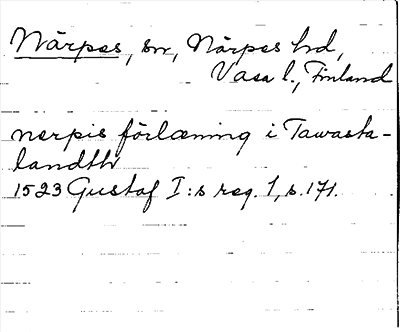 Närpes, sn, Närpes hd,
Vasa l., Finland
nerpis förlæning i Tawasta-
landth
1523 Gustaf I:s reg. 1, s. 171.